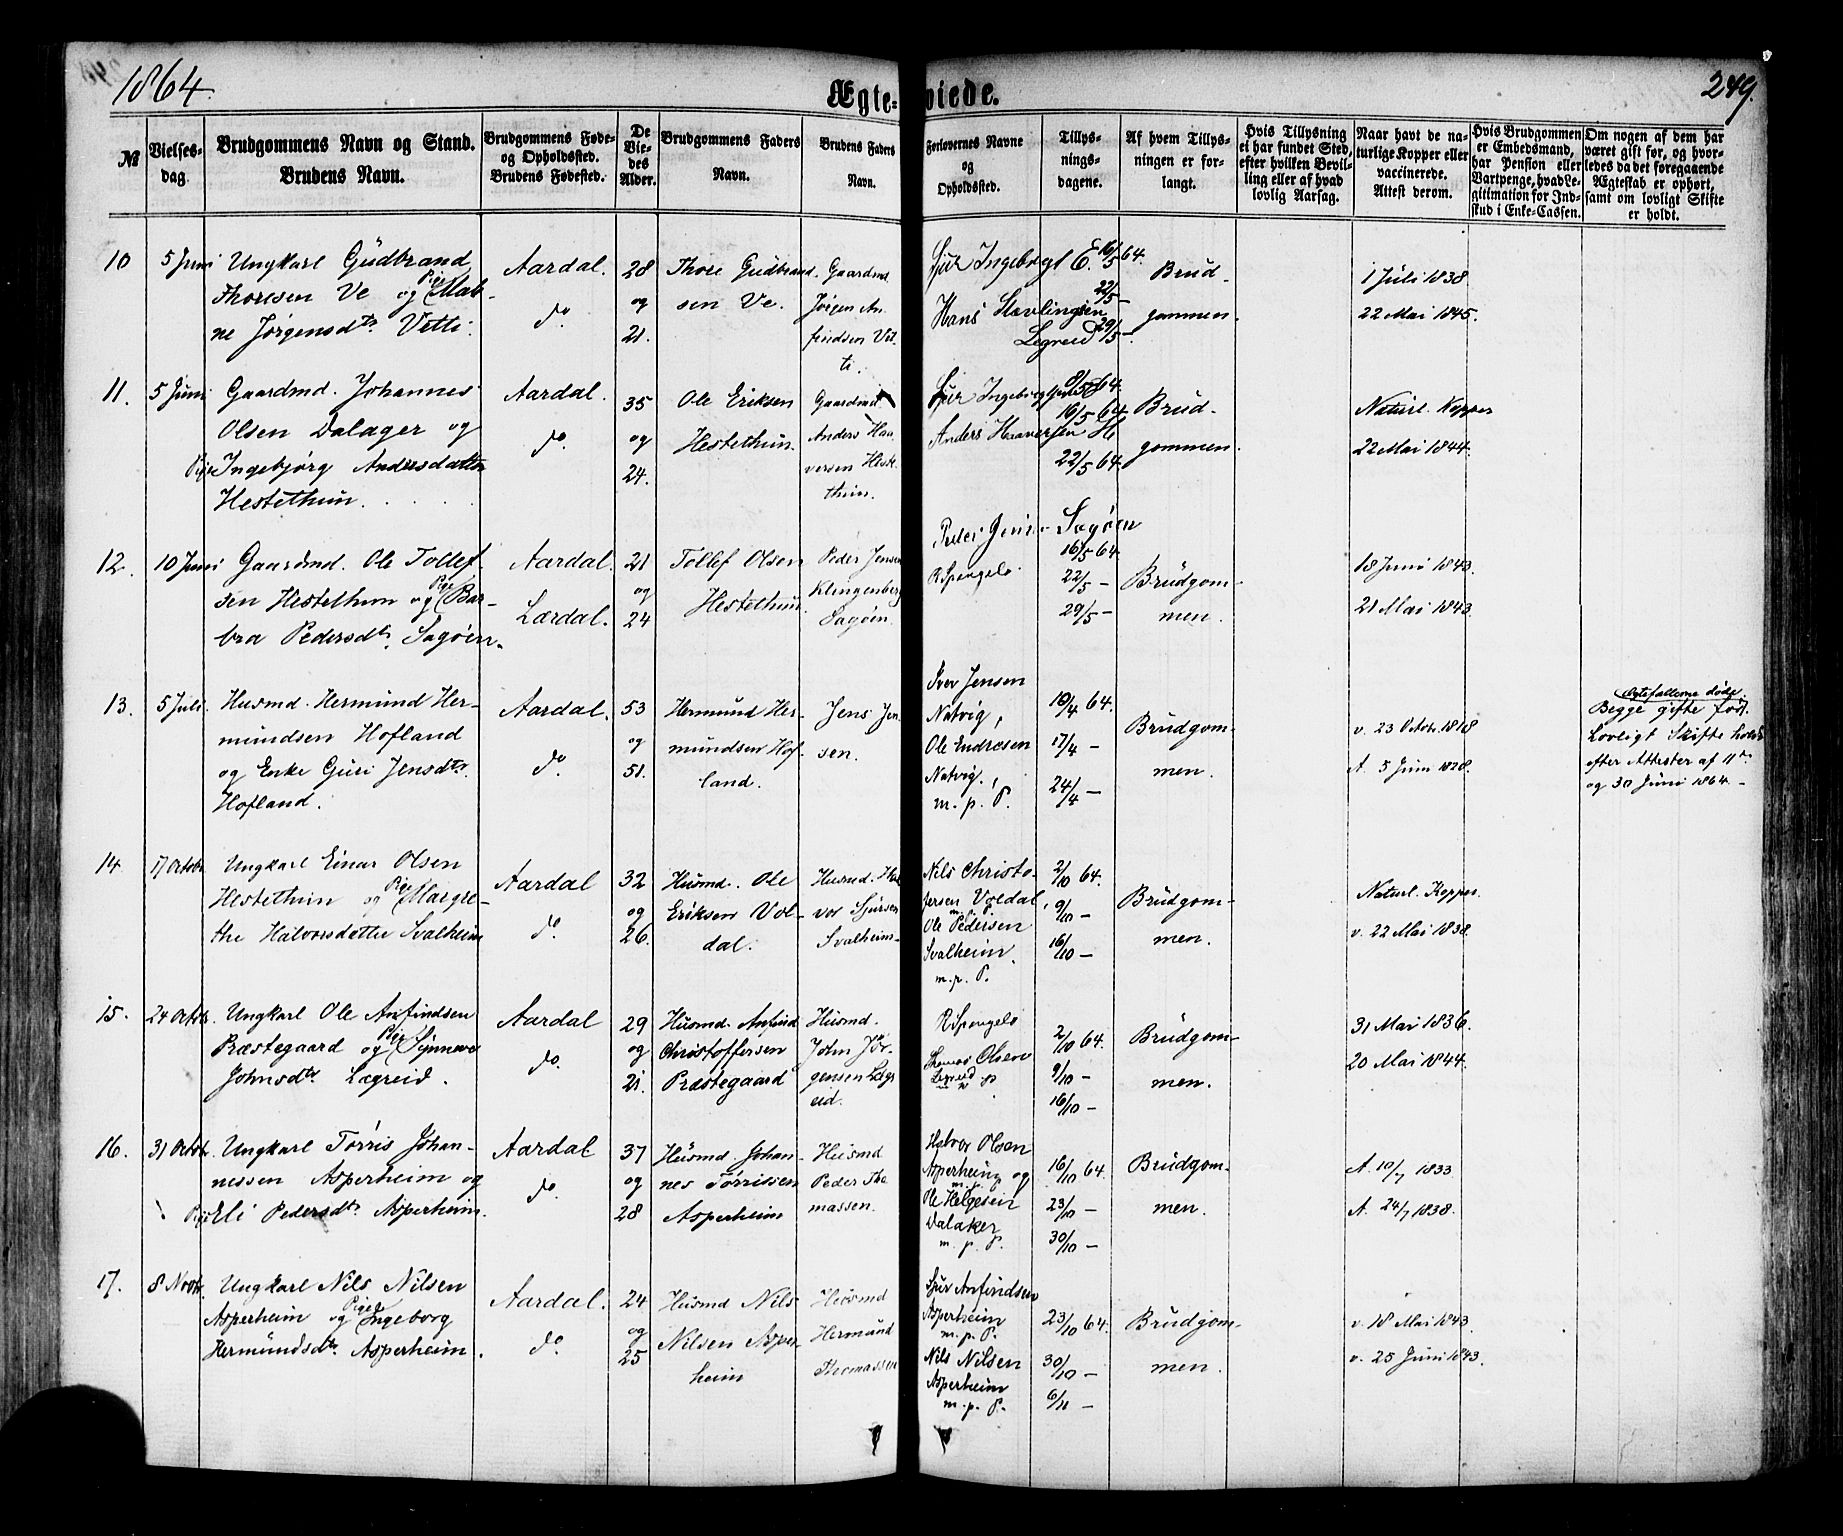 1864.
Ægteviede.
249.
№
Vielsesdag.
Brudgommens Navn og Stand.
Brudens Navn.
Brudgommens Føde-
og Opholdssted.
Brudens Fødested.
De
Vie-
des
Alder.
Brudgommens Faders
Navn.
Brudens Faders
Navn.
Forlovernes Navne
og
Opholdssted.
Tillys-
nings-
dagene.
Af hvem Tillys-
ningen er for-
langt.
Hvis Tillysning
ei har fundet Sted,
efter hvilken Bevil-
ling eller af hvad
lovlig Aarsag.
Naar havt de na-
turlige Kopper eller
vaccinerede.
Attest derom.
Hvis Brudgommen
er Embedsmand,
har Pension eller
Vartpenge, hvad Le-
gitimation for Ind-
skud i Enke-Cassen.
Om nogen af dem har
været gift før, og hvor-
ledes da det foregaaende
Ægteskab er ophørt,
samt om lovligt Skifte
er holdt.
10
5 Juni
Ungkarl Gudbrand
Thoresen Ve og Pige Mab-
ne Jørgensdtr Vetti.
Aardal.
do.
28
og
21.
Thore Gudbrand-
sen Ve.
Gaardmd.
Jørgen An
findsen Vet-
ti.
Sjur Ingebrigt E.
Hans Stævlingsen
Legreid
16/5 64.
22/5 —
29/5 —
Brud-
gommen.
1 Juli 1838
22 Mai 1845.
11.
5 Juni
Gaardmd. Johannes
Olsen Dalager og
Pige Ingebjørg Andersdatter
Hestethun.
Aardal.
do.
35
og
24.
Ole Eriksen
Hestethun.
Gaardmd
Anders Haa
versen Hest
thun.
Sjur Ingebrigt
Anders Haaversen He
8/5 64.
16/5 64.
22/5 64.
Brud-
gommen.
Naturl. Kopper
22 Mai 1844.
12.
10 Juni
Gaardmd. Ole Tollef-
sen Hestethun og Pige Bar-
bra Pedersdtr. Sagøen.
Aardal.
Lærdal.
21
og
24
Tollef Olsen
Hestethun
Peder Jensen
Klingenberg
Sagøen.
Peder Jensen Sagøen
R Spengelo
16/5 64.
22/5 —
29/5 —
Brudgom-
men.
18 Juni 1843.
21 Mai 1843.
13.
5 Juli.
Husmd. Hermund Her-
mundsen Hofland
og Enke Guri Jensdtr.
Hofland.
Aardal.
do.
53
og
51.
Hermund Her-
mundsen Hof-
land.
Jens Jen-
sen.
Iver Jensen
Natvig,
Ole Endresen
Natvig.
m. p. P.
10/4 64.
17/4 —
24/4 —
Brudgom-
men.
v. 23 Octor. 1818
A. 5 Juni 1828.
Ægtefællerne døde.
Begge gifte før.
Lovligt Skifte holdt
efter Attester af 11te
og 30 Juni 1864. —
14
17 Octobr.
Ungkarl Einar Olsen
Hestethun og Pige Margre-
the Halvorsdatter Svalheim
Aardal
do.
32
og
26.
Husmd. Ole
Eriksen Vol-
dal.
Husmd. Hal
vor Sjursen
Svalheim.
Nils Christo-
fersen Voldal,
m. p. P.
Ole Pedersen
Svalheim.
m. p. P.
2/10 64.
9/10 —
16/10 —
Brudgom-
men.
Naturl. Kopper.
v. 22 Mai 1838.
15.
24 Octobr.
Ungkarl Ole Anfindsen
Præstegaard og Pige Synneve
Johnsdtr. Lægreid.
Aardal
do.
29
og
21.
Husmd. Anfind
Christoffersen
Præstegaard
Husmd.
John Jør-
gensen Lægr
eid.
R Spengelo
Thomas Olsen
Legreid
2/10 64.
9/10 —
16/10 —
Brudgom-
men.
31 Mai 1836.
20 Mai 1844.
16.
31 Octobr.
Ungkarl Tørris Johan-
nessen Asperheim og
Pige Eli Pedersdtr. Asperheim.
Aardal
do.
37
og
28
Husmd. Johan-
nes Tørrissen
Asperheim
Husmd
Peder Tho
massen.
Halvor Olsen
Asperheim og
m. p. P.
Ole Helgesen
Dalaker
m. p. P.
16/10 64.
23/10 —
30/10 —
Brudgom-
men.
A. 10/7 1833
A. 24/7 1838.
17.
8 Novbr.
Ungkarl Nils Nilsen
Asperheim og Pige Ingeborg
Hermundsdtr. Asperheim.
Aardal.
do.
24
og
25
Husmd Nils
Nilsen Asper-
heim
Husmd
Hermund
Thomassen
Sjur Anfindsen
Asperheim
m. p. P.
Nils Nilsen
Asperheim
m. p. P.
23/10 64.
30/10 —
6/11 —
Brudgom-
men.
v. 18 Mai 1843.
v. 25 Juni 1843.